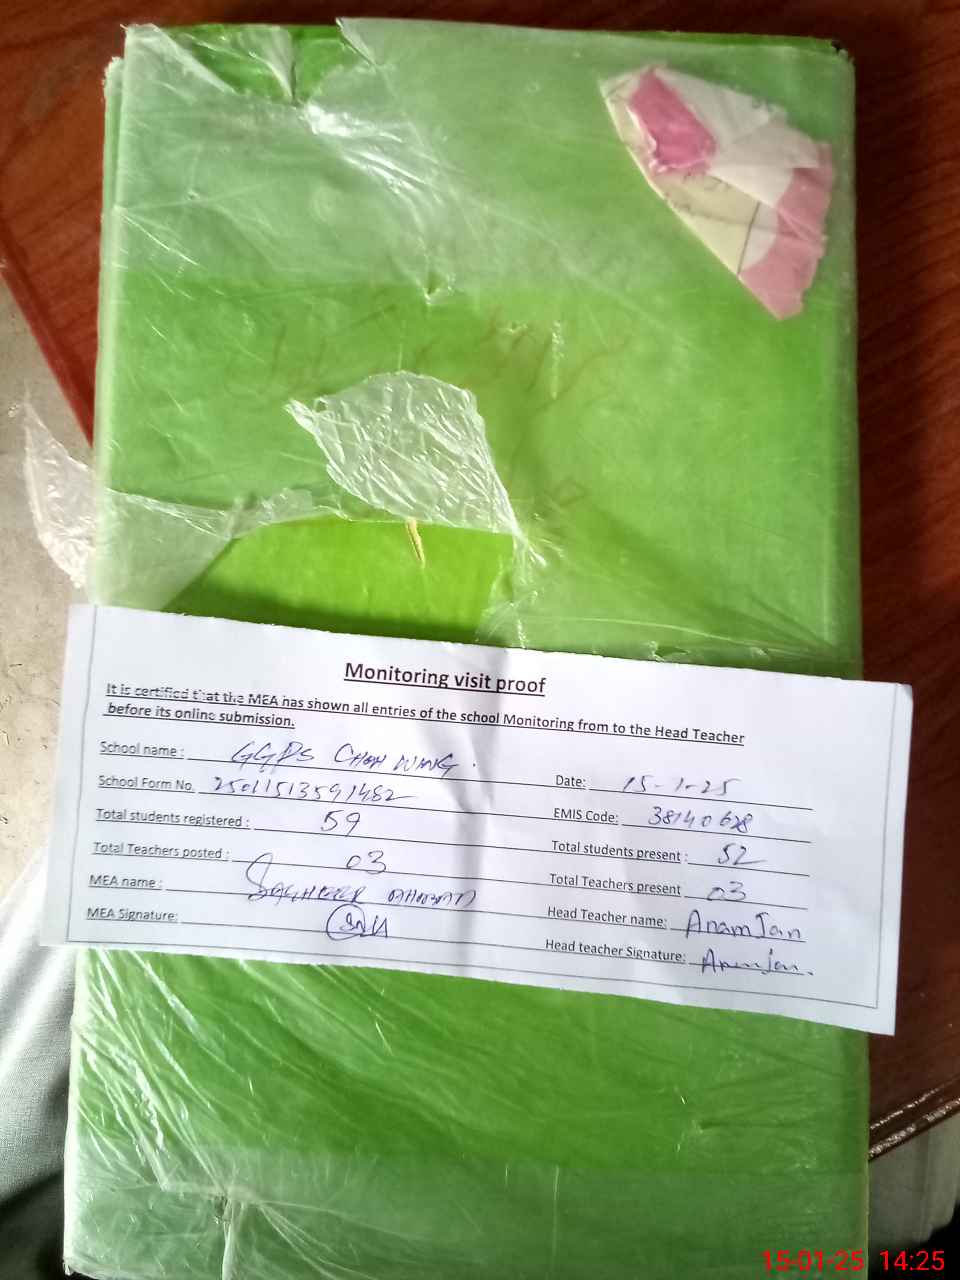 Monitoring visit proof
It is certified that the MEA has shown all entries of the school Monitoring from to the Head Teacher
before its online submission.
School name : GGPS Chah Wang
Date: 15-1-25
School Form No. 25011513591482
EMIS Code: 38140628
Total students registered : 59
Total students present : 52
Total Teachers posted : 03
Total Teachers present 03
MEA name : Sagheer Ahmad
Head Teacher name: Anam Jan
MEA Signature:
Head teacher Signature: Anam Jan.
15-01-25 14:25